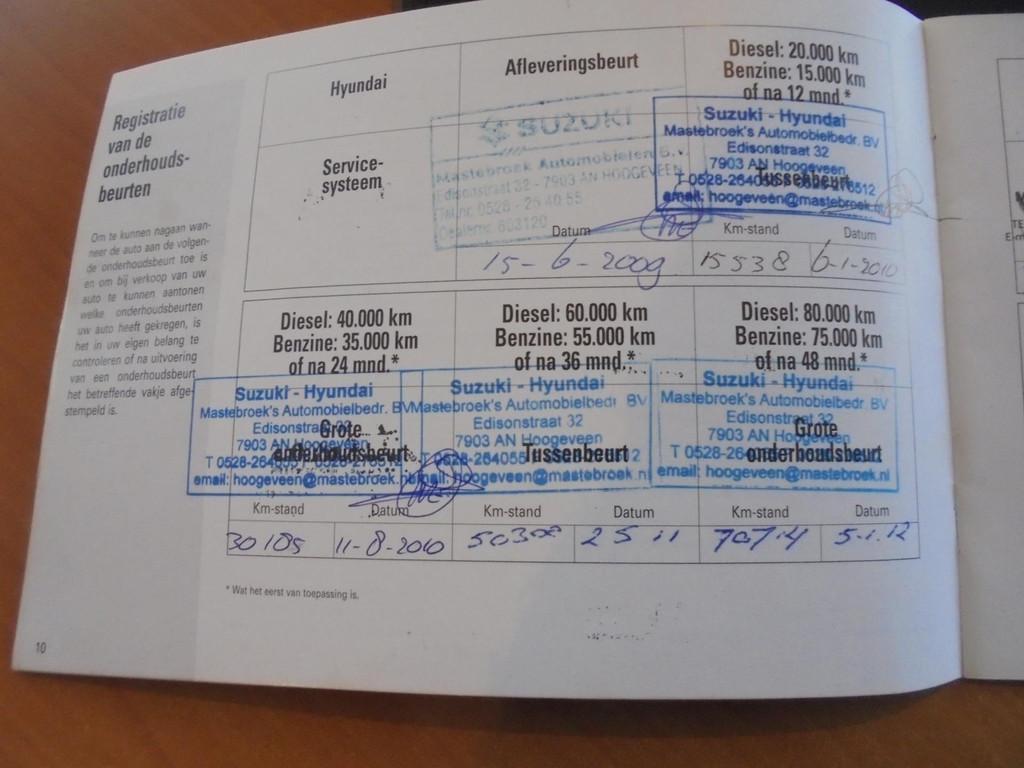 Registratie
van de
onderhouds-
beurten
Om te kunnen nagaan wan-
neer de auto aan de volgen-
de onderhoudsbeurt toe is
en om bij verkoop van uw
auto te kunnen aantonen
welke onderhoudsbeurten
uw auto heeft gekregen, is
het in uw eigen belang te
controleren of na uitvoering
van een onderhoudsbeurt
het betreffende vakje afge-
stempeld is.
10
Hyundai
Service-
systeem
Afleveringsbeurt
SUZUKI
Mastebroek Automobielen B.V.
Edisonstraat 32 - 7903 AN HOOGEVEEN
Tel.nr. 0528 - 26 40 55
Datum
15-6-2009
Diesel: 20.000 km
Benzine: 15.000 km
of na 12 mnd.*
Suzuki - Hyundai
Mastebroek's Automobielbedr. BV
Edisonstraat 32
7903 AN Hoogeveen
Tussenbeurt
email: hoogeveen@mastebroek.nl
Km-stand
Datum
15538
6-1-2010
Diesel: 40.000 km
Benzine: 35.000 km
of na 24 mnd.*
Suzuki - Hyundai
Mastebroek's Automobielbedr. BV
Edisonstraat 32
Grote
7903 AN Hoogeveen
onderhoudsbeurt
email: hoogeveen@mastebroek.nl
Km-stand
Datum
30185
11-8-2010
Diesel: 60.000 km
Benzine: 55.000 km
of na 36 mnd.*
Suzuki - Hyundai
Mastebroek's Automobielbedr BV
Edisonstraat 32
7903 AN Hoogeveen
Tussenbeurt
email: hoogeveen@mastebroek.nl
Km-stand
Datum
50308
25 11
Diesel: 80.000 km
Benzine: 75.000 km
of na 48 mnd.*
Suzuki - Hyundai
Mastebroek's Automobielbedr. BV
Edisonstraat 32
Grote
7903 AN Hoogeveen
onderhoudsbeurt
email: hoogeveen@mastebroek.nl
Km-stand
Datum
70714
5-1.12
* Wat het eerst van toepassing is.